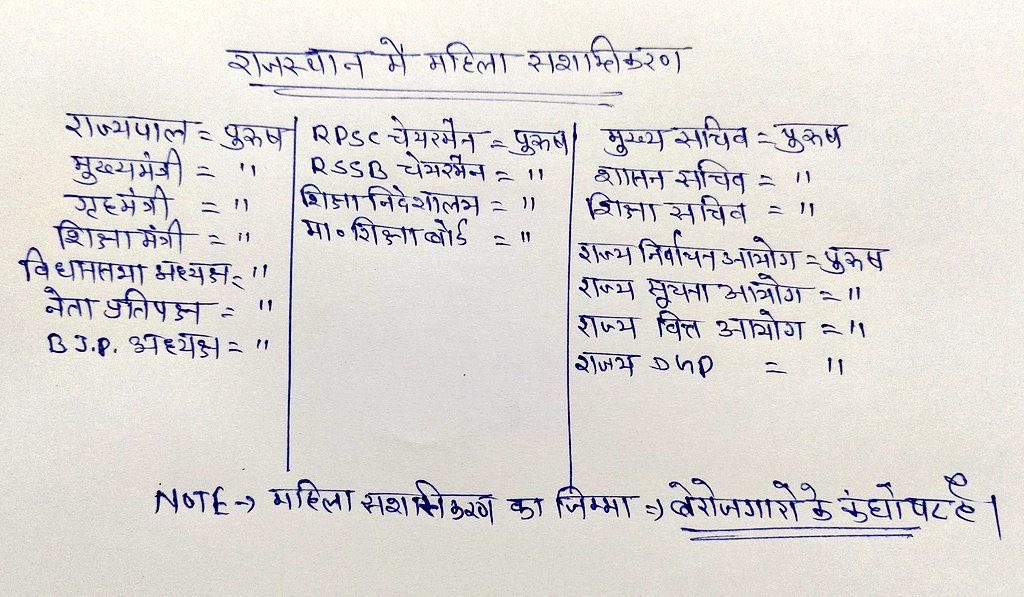 राजस्थान में महिला सशक्तिकरण
राज्यपाल = पुरूष
मुख्यमंत्री = "
गृहमंत्री = "
शिक्षा मंत्री = "
विधानसभा अध्यक्ष = "
नेता प्रतिपक्ष = "
B J.P. अध्यक्ष = "
RPSC चेयरमैन = पुरूष
RSSB चेयरमैन = "
शिक्षा निदेशालय = "
मा० शिक्षा बोर्ड = "
मुख्य सचिव = पुरूष
शासन सचिव = "
शिक्षा सचिव = "
राज्य निर्वाचन आयोग = पुरूष
राज्य सूचना आयोग = "
राज्य वित्त आयोग = "
राज्य DGP = "
NOTE → महिला सशक्तिकरण का जिम्मा ⇒ बेरोजगारों के कंधों पर है।